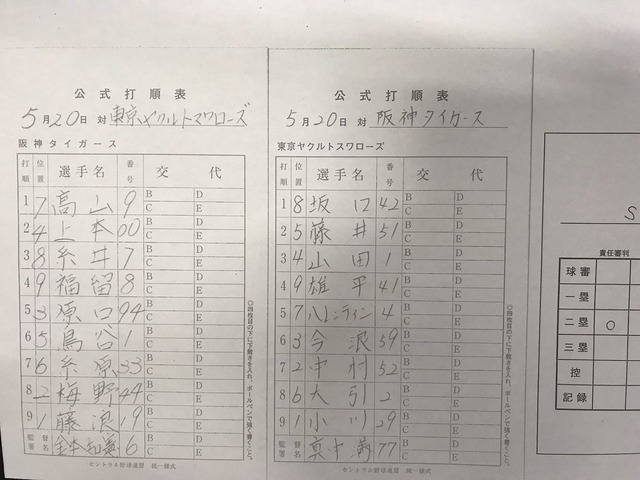 公式打順表
5月20日 対 東京ヤクルトスワローズ
阪神タイガース
打順 位置 選手名 番号 交代
1 7 高山 9 B C D E
2 4 上本 00 B C D E
3 8 糸井 7 B C D E
4 9 福留 8 B C D E
5 3 原口 94 B C D E
6 5 鳥谷 1 B C D E
7 6 糸原 33 B C D E
8 2 梅野 44 B C D E
9 1 藤浪 19 B C D E
監督署名 金本知憲 6 B C D E
セントラル野球連盟 統一様式
○四枚目の下に下敷きを入れ、ボールペンで強く書くこと。
公式打順表
5月20日 対 阪神タイガース
東京ヤクルトスワローズ
打順 位置 選手名 番号 交代
1 8 坂口 42 B C D E
2 5 藤井 51 B C D E
3 4 山田 1 B C D E
4 9 雄平 41 B C D E
5 7 バレンティン 4 B C D E
6 3 今浪 59 B C D E
7 2 中村 52 B C D E
8 6 大引 2 B C D E
9 1 小川 29 B C D E
監督署名 真中満 77 B C D E
セントラル野球連盟 統一様式
○四枚目の下に下敷きを入れ、ボールペンで強く書くこと。
S
責任審判
球審
一塁
二塁 ○
三塁
控
記録